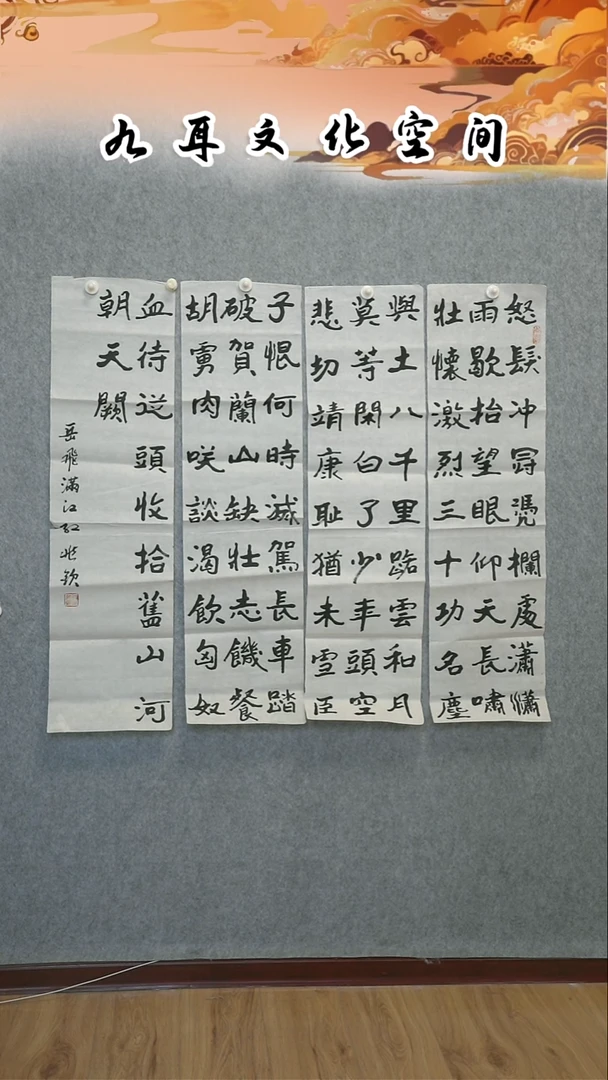 九耳文化空间
怒髮冲冠凴欄處瀟瀟
雨歇抬望眼仰天長嘯
壯懷激烈三十功名塵
與土八千里路雲和月
莫等閑白了少年頭空
悲切靖康耻猶未雪臣
子恨何時滅駕長車踏
破賀蘭山缺壯志饑餐
胡虜肉咲談渴飲匈奴
血待從頭收拾舊山河
朝天闕
岳飛滿江紅兆欽